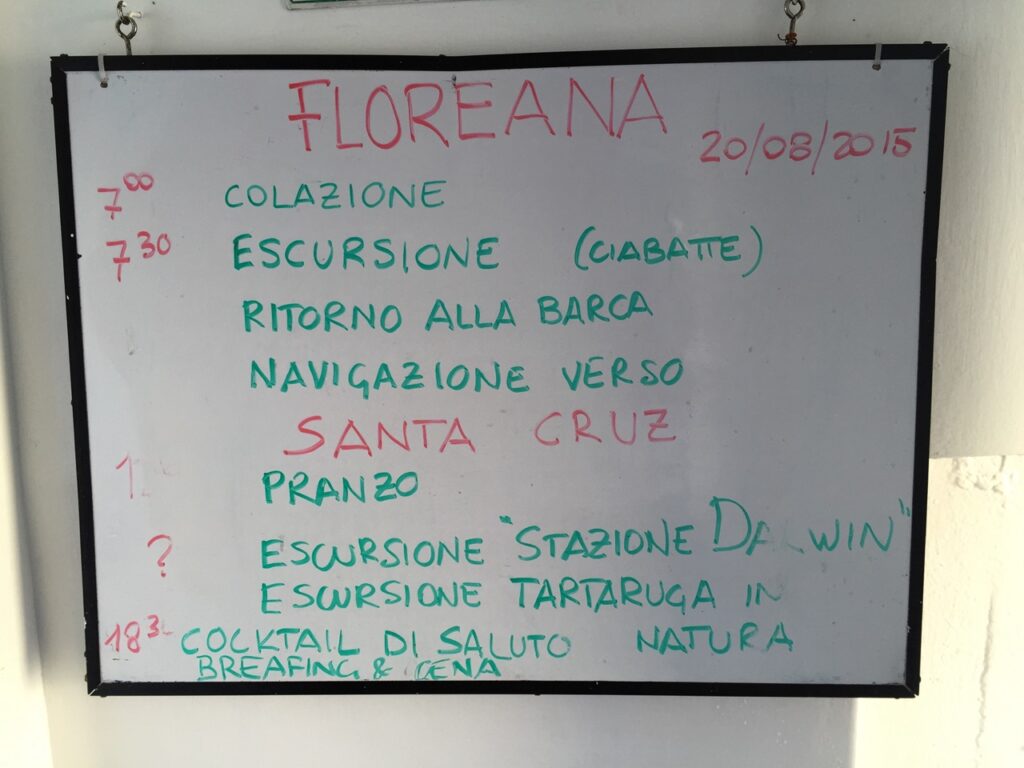 FLOREANA
20/08/2015
7 00 COLAZIONE
7 30 ESCURSIONE (CIABATTE)
RITORNO ALLA BARCA
NAVIGAZIONE VERSO
SANTA CRUZ
PRANZO
? ESCURSIONE "STAZIONE DARWIN"
ESCURSIONE TARTARUGA IN
NATURA
18 3 COCKTAIL DI SALUTO
BREAFING & CENA